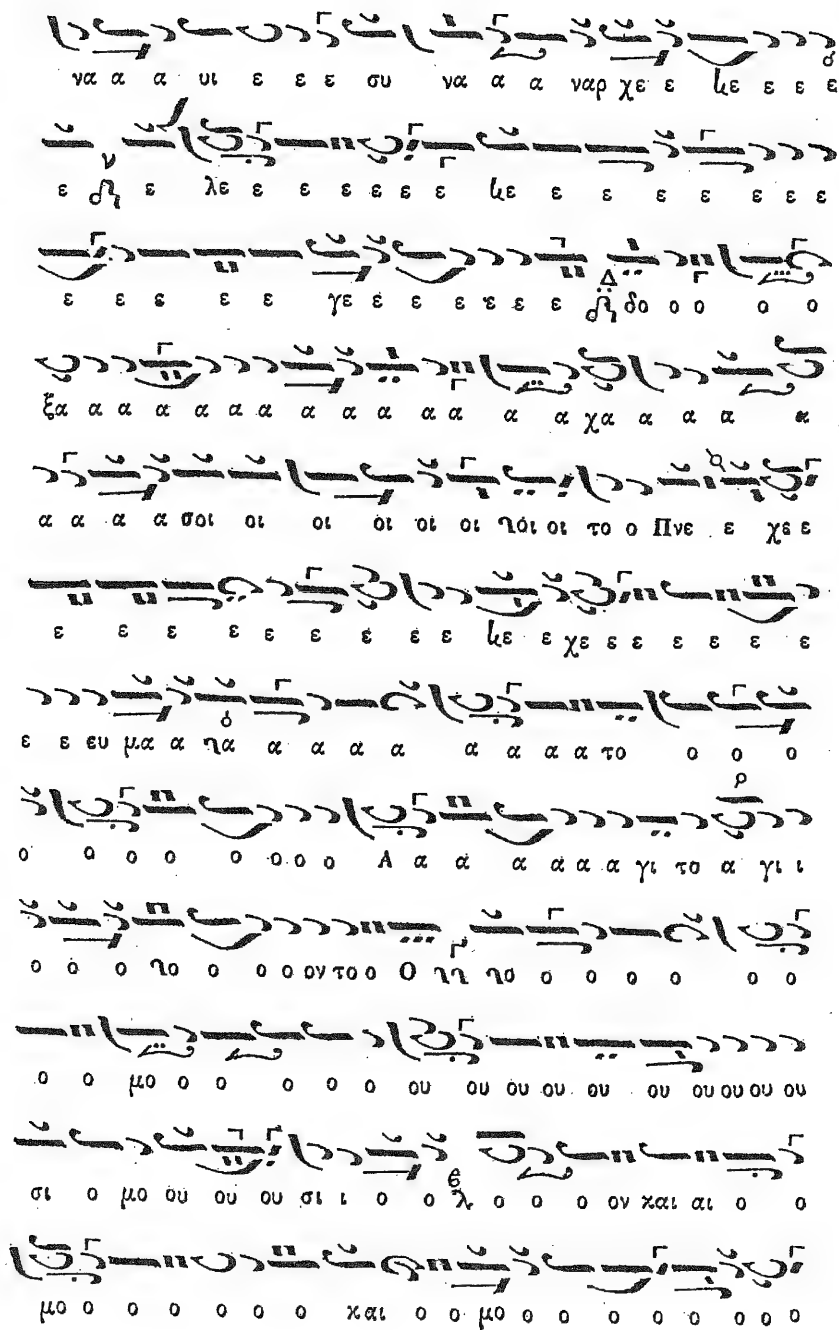 να α α υι ε ε ε συ να α α ναρ χε ε ε ε ε ε
ε ε λε ε ε ε ε ε ε ε ε ε ε ε ε ε
ε ε ε ε ε γε ε ε ε ε ε ε δο ο ο ο ο
ξα α α α α α α α α α α α α α χα α α α α
α α α α σοι οι οι οι οι οι οι το ο Πνε ε χε ε
ε ε ε ε ε ε ε ε ε ε χε ε ε ε ε ε ε
ε ε ευ μα α α α α α α α α α το ο ο ο
ο ο ο ο ο ο ο ο Α α α α α α α γι το α γι ι
ο ο ο ο ο ο ον το ο Ο ο ο ο ο ο ο
ο ο μο ο ο ο ο ο ου ου ου ου ου ου ου ου ου ου
σι ο μο ου ου ου σι ι ο ο ο ο ο ον και αι ο ο
μο ο ο ο ο ο ο και ο ο μο ο ο ο ο ο ο ο